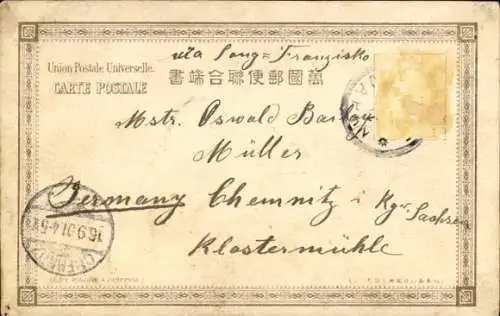 via Sang=Franzisko
Union Postale Universelle.
CARTE POSTALE
書端合聯便郵國萬
Mstr. Oswald
Müller
Germany Chemnitz i Kgr. Sachsen
Klostermühle
16.9.01.4-5
CHEMNITZ